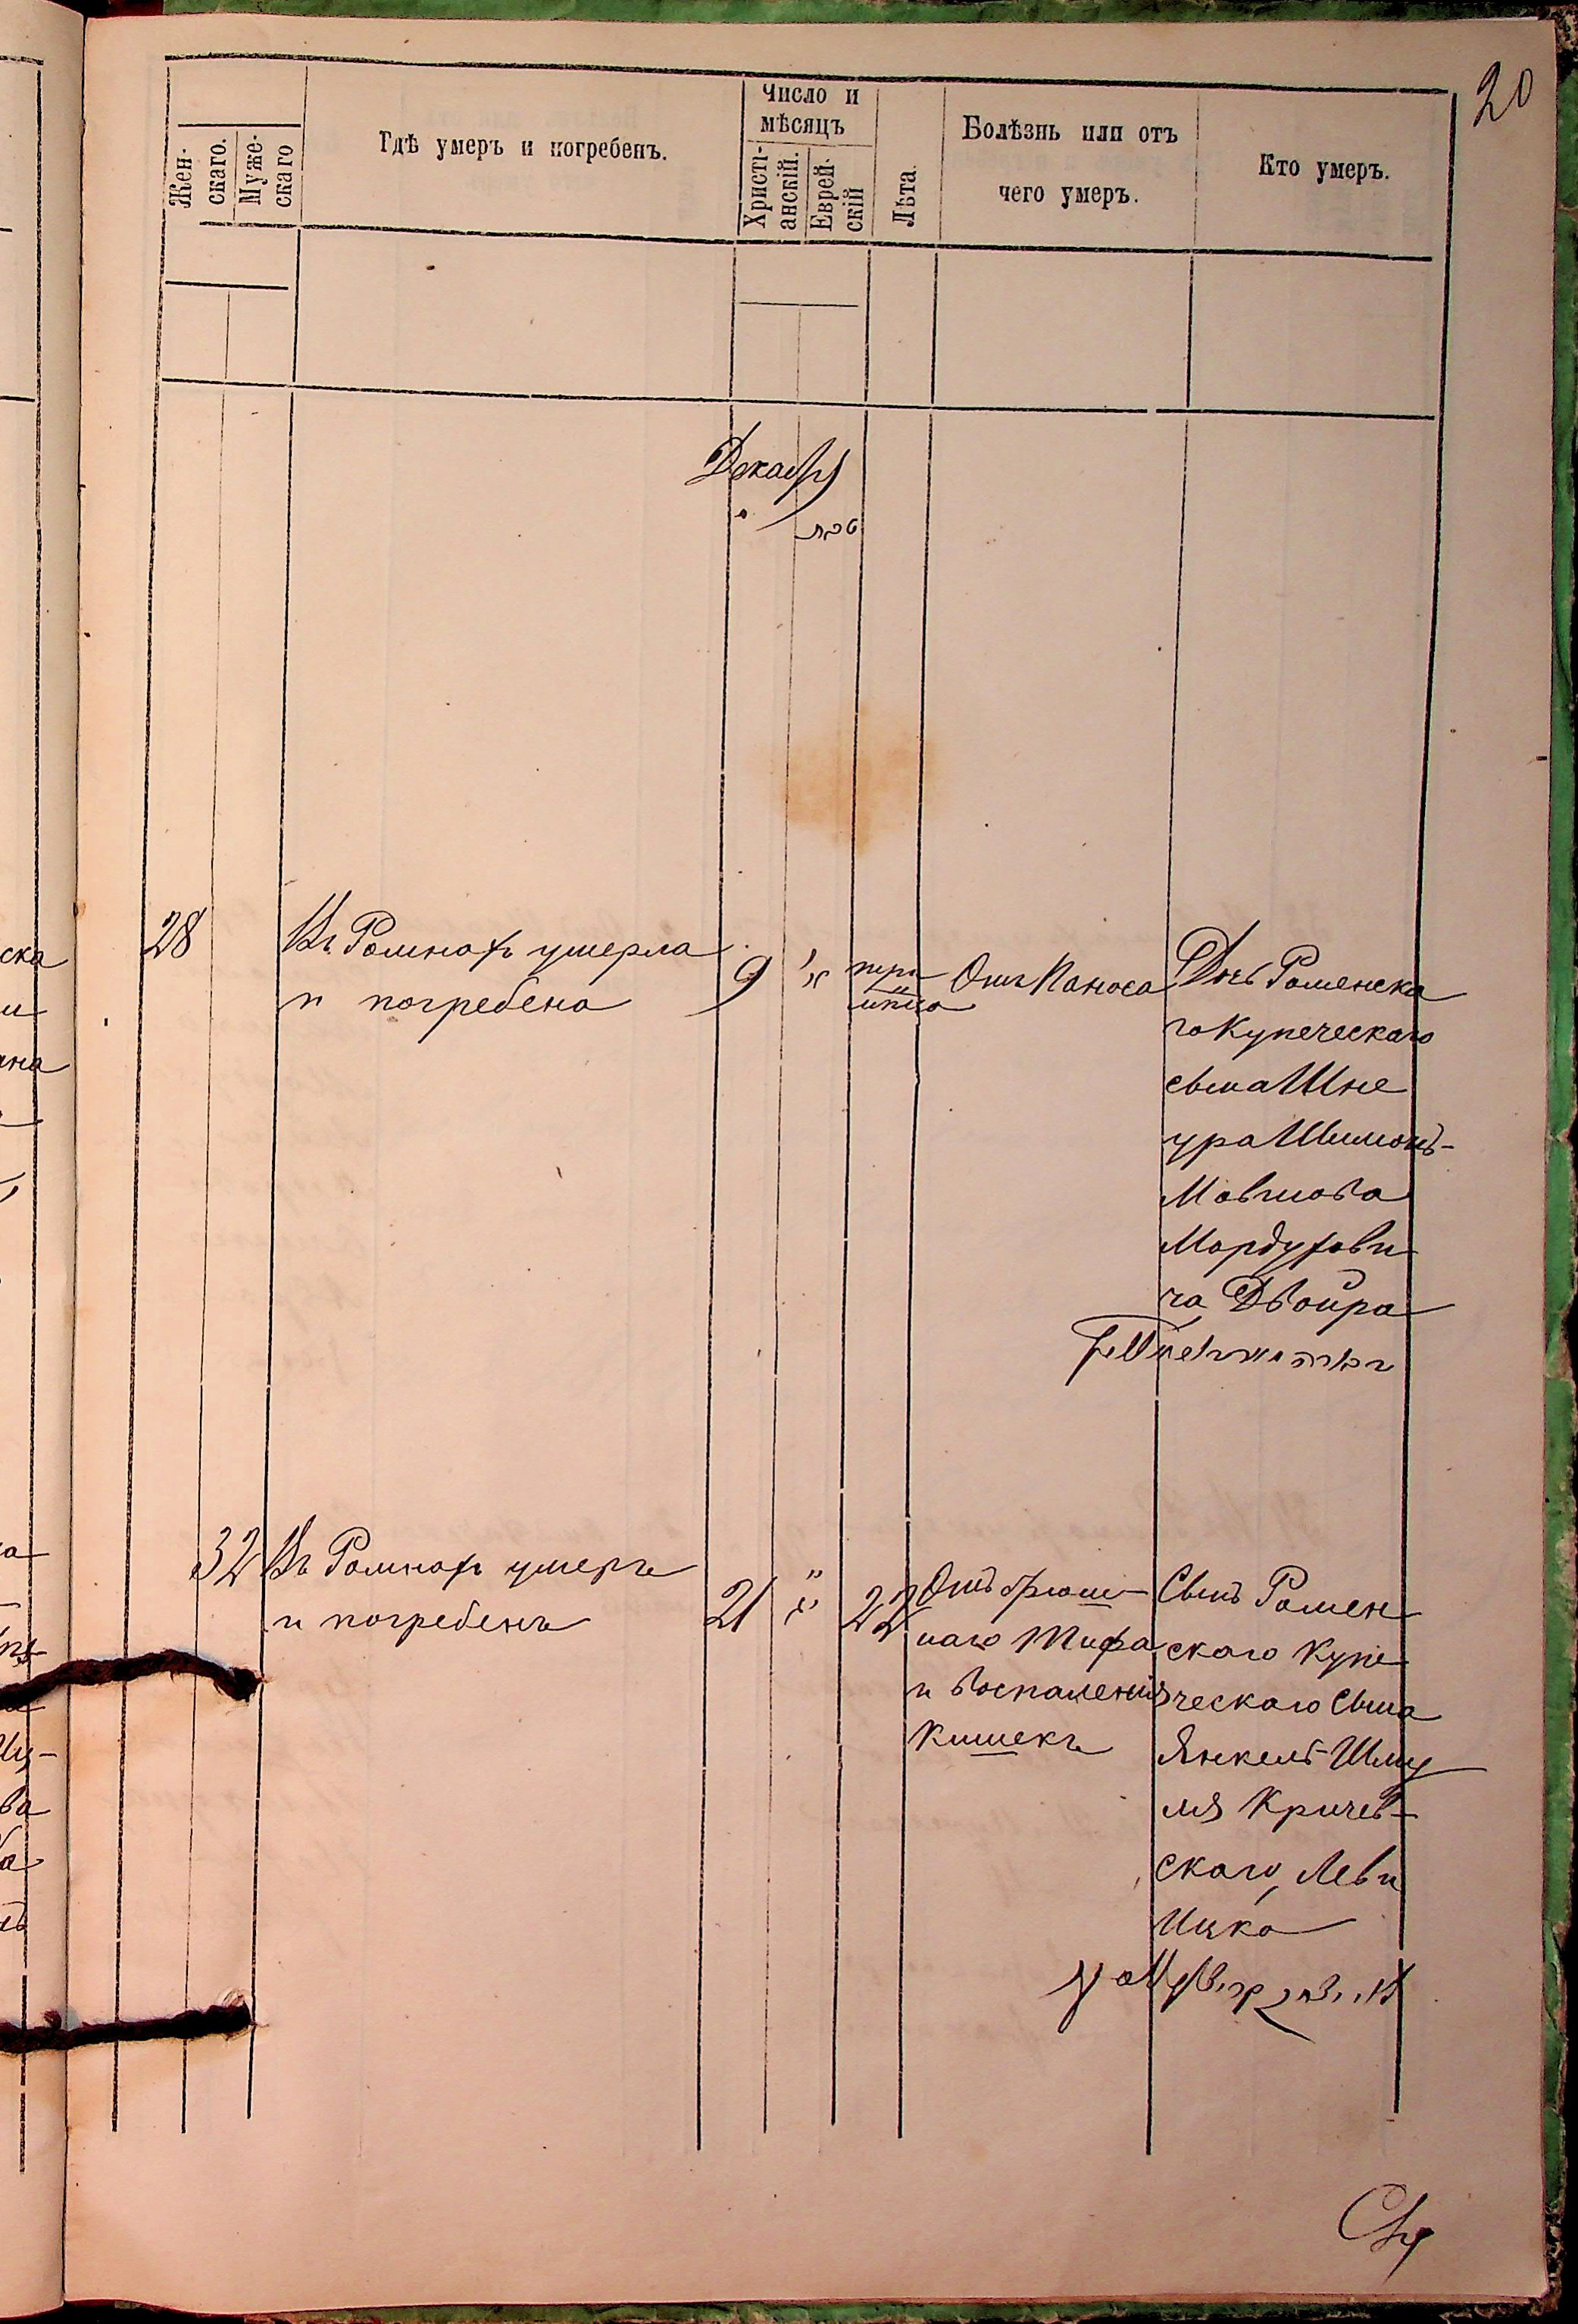 20
Жен-
скаго.
Муже-
скаго
Гдѣ умеръ и погребенъ.
Число и
мѣсяцъ
Христі-
анскій.
Еврей-
скій
Лѣта.
Болѣзнь или отъ
чего умеръ.
Кто умеръ.
Декабрь
טבת
28
Въ Ромнахъ умерла
и погребена
9
три
мѣсяца
Отъ Поноса
Дочь Роменска
го Купеческаго
сына Шне
ура Шимонъ-
Мовшова
Мордухови
ча Двойра
32
Въ Ромнахъ умеръ
и погребенъ
21
22
Отъ брюш-
наго Тифа
и воспаленія
Кишекъ
Сынъ Ромен
скаго Купе
ческаго Сына
Янкель-Шму
ля Кричев-
скаго, Леви
Ицко